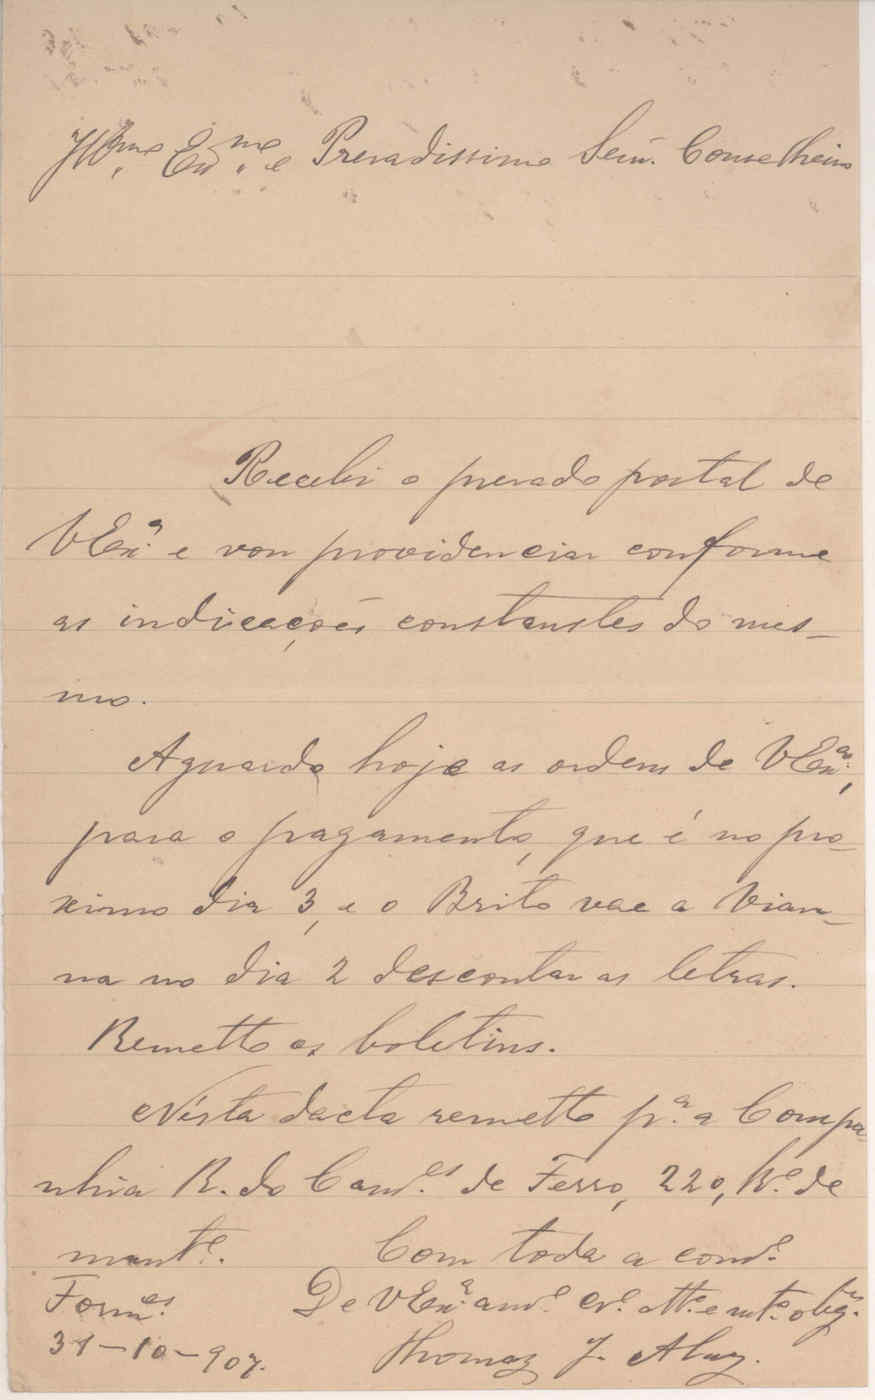 Illmo. Exmo. e Presadissimo Senr. Conselheiro
Recebi o presado postal de
V Exa. e vou providenciar conforme
as indicações constantes do mes-
mo.
Aguardo hoje as ordens de V Exa.,
para o pagamento, que é no pro-
ximo dia 3, e o Brito vae a Vian-
na no dia 2 descontar as letras.
Remetto os boletins.
N'esta dacta remetto pa. a Compa-
nhia R. do Camos. de Ferro, 220, Ko. de
mante. Com toda a conse.
De V Exa. amo. cro. atto. e mto. obrigo.
31-10-907. Thomaz J. Aluz.